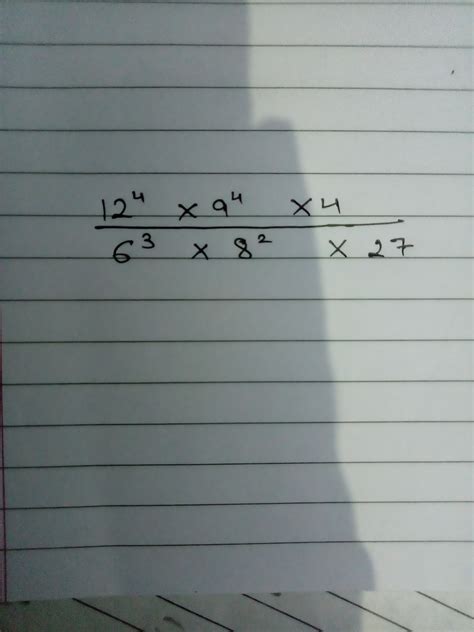 12⁴ × 9⁴ × 4
6³ × 8² × 27